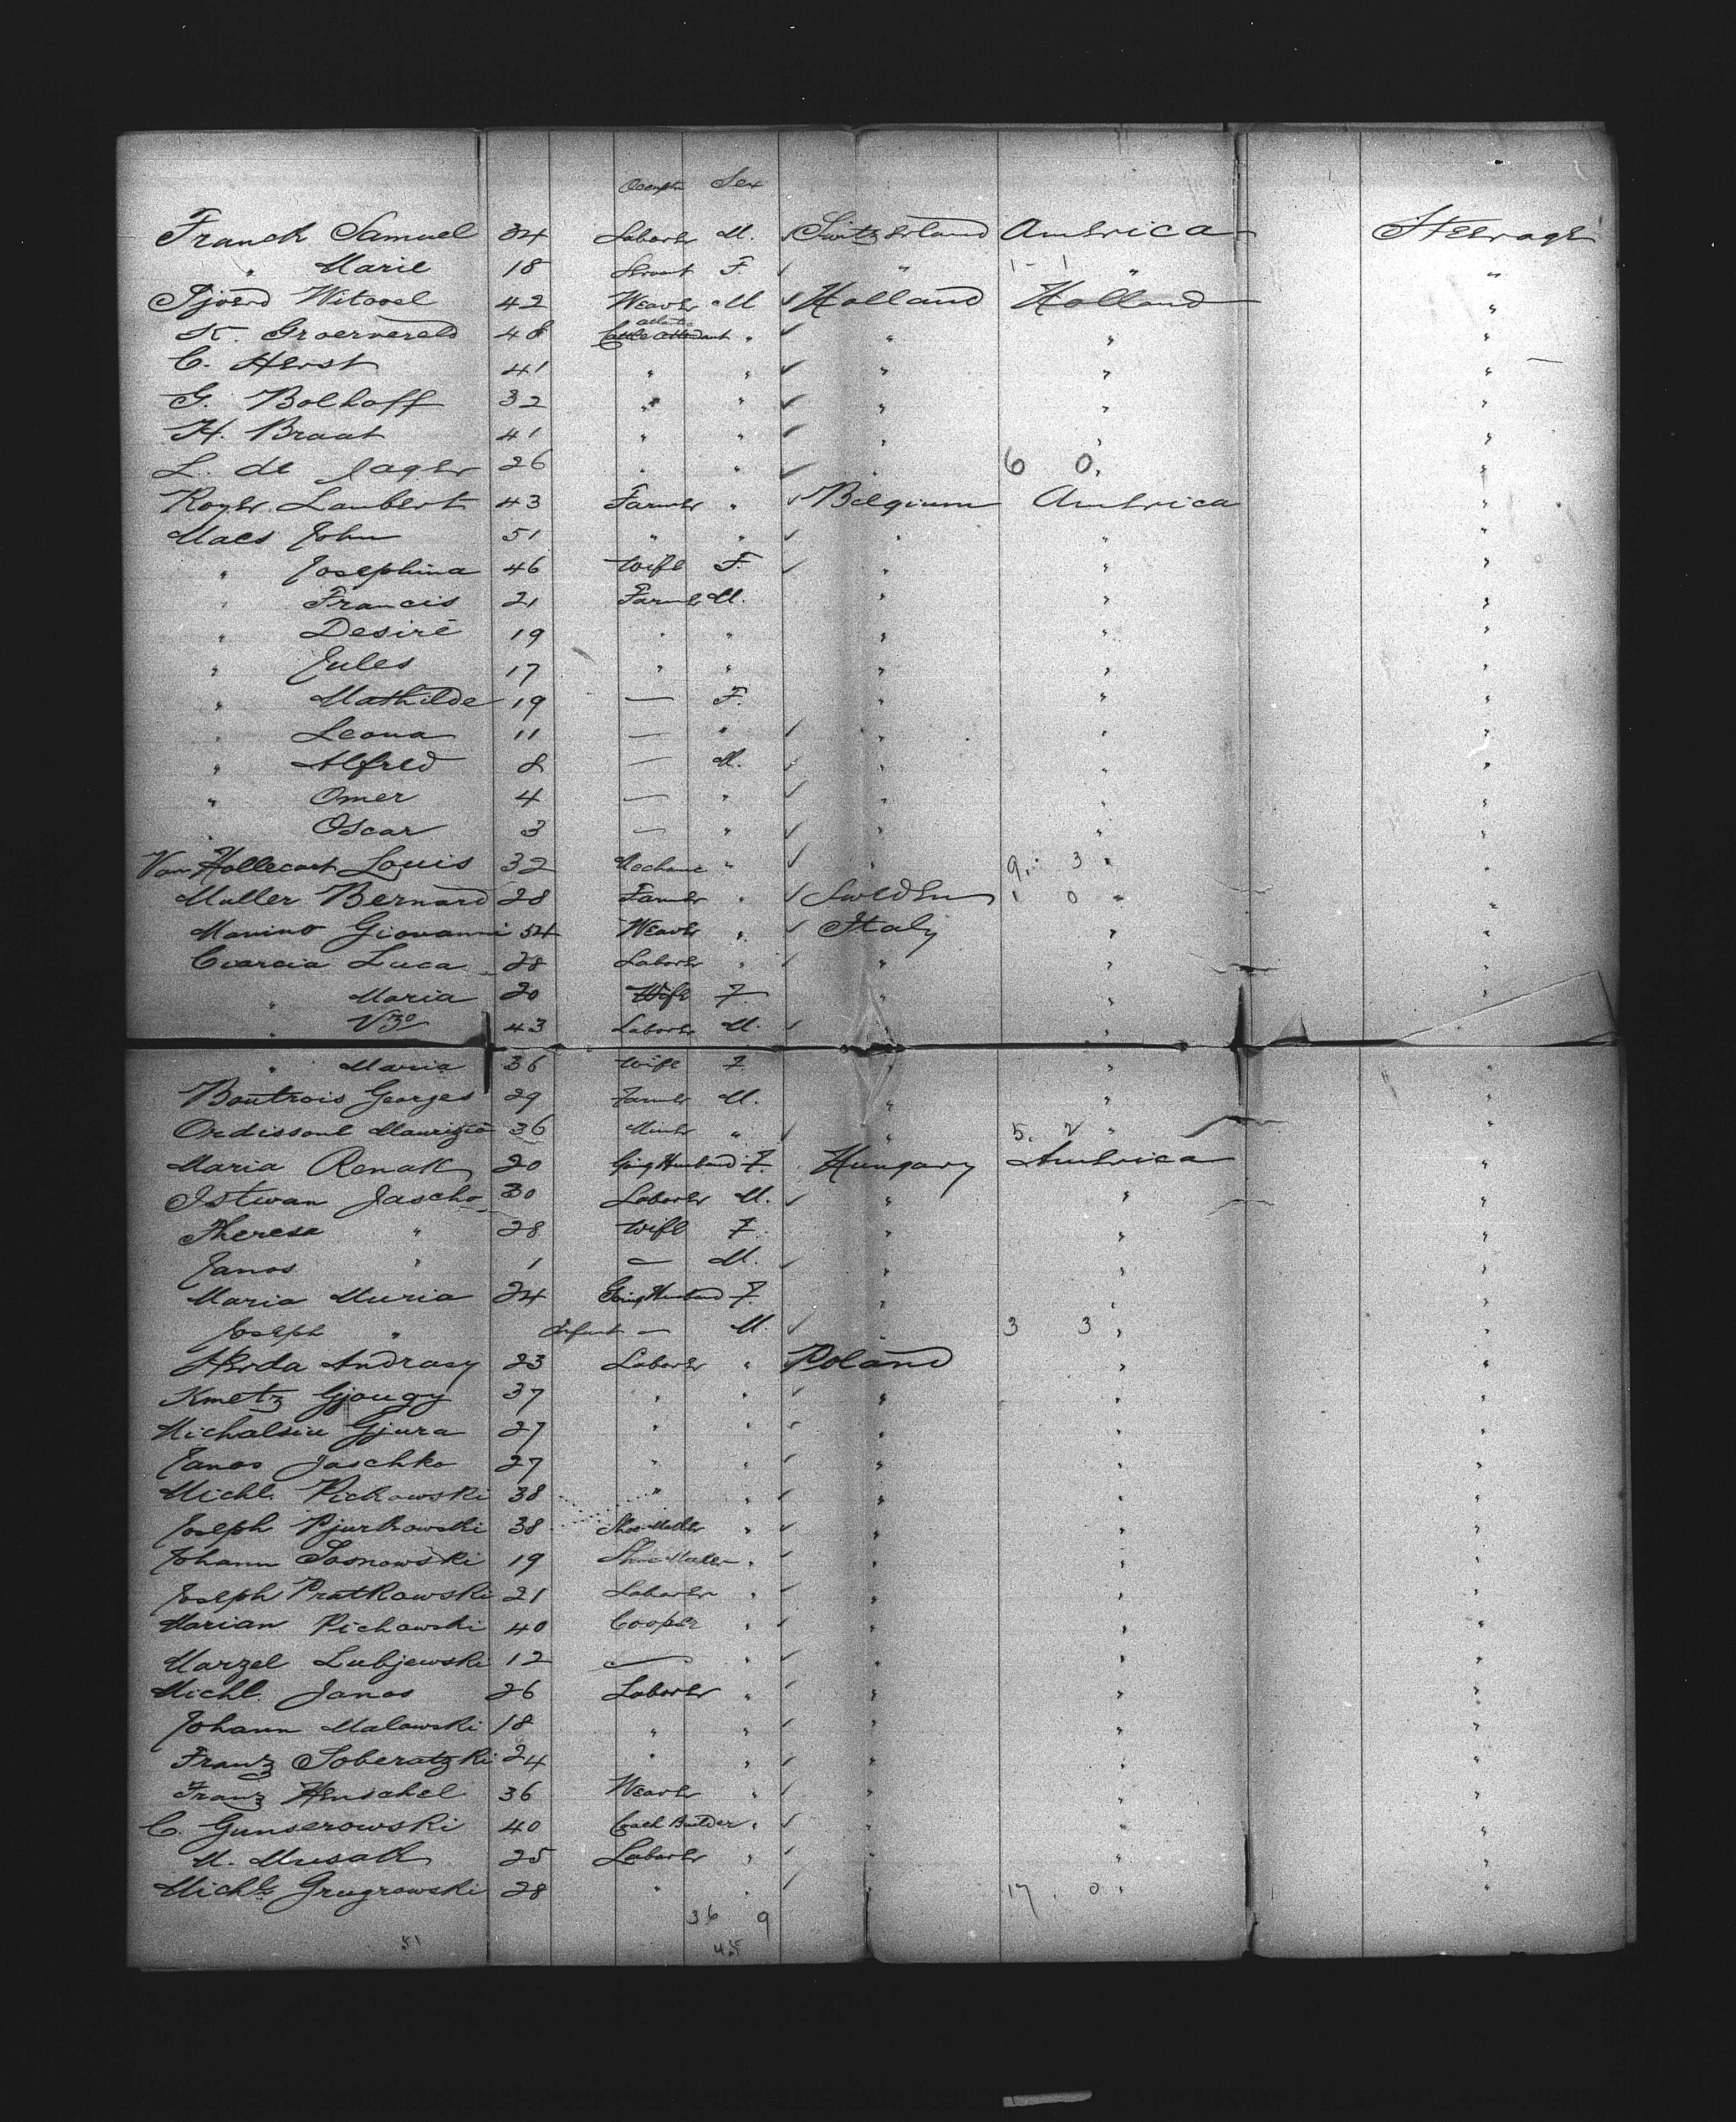 Occupn Sex
Franck Samuel 34 Laborer M. Switzerland America Steerage
" Marie 18 Servant F. " 1 - 1 " "
Sjoerd Witovel 42 Weaver M Holland Holland "
K. Groeneveld 48 Cattle Attendant " " " "
C. Herst 41 " " " " "
G. Bolhoff 32 " " " " "
H. Braat 41 " " " " "
L. de Jager 26 " " " 6 0 " "
Royer Lambert 43 Farmer " Belgium America "
Maes John 51 " " " " "
" Josephina 46 Wife F. " " "
" Francis 21 Farmer M. " " "
" Desiré 19 " " " " "
" Jules 17 " " " " "
" Mathilde 19 — F. " " "
" Leona 11 — " " " "
" Alfred 8 — M. " " "
" Omer 4 — " " " "
" Oscar 3 — " " " "
Van Hollecart Louis 32 Mechanic " " 9. 3 " "
Muller Bernard 28 Farmer " Sweden 1 0 " "
Manino Giovanni 54 Weaver " Italy " "
Ciarcia Luca 28 Laborer " " " "
" Maria 20 Wife F. " " "
" Vzo 43 Laborer M. " " "
" Maria 36 Wife F " " "
Boutrois Georges 29 Farmer M. " " "
Ordissoul Maurizio 36 Miner " " 5. 2 " "
Maria Renak 20 Going Husband F. Hungary America "
Istwan Jascho 30 Laborer M. " " "
Theresa " 28 Wife F. " " "
Janos " 1 — M. " " "
Maria Muria 24 Going Husband F. " " "
Joseph " Infant — M. " 3 3 " "
Herda Andrasy 23 Laborer " Poland " "
Kmetz Gjougy 37 " " " " "
Michalsin Gjura 27 " " " " "
Janos Jaschko 27 " " " " "
Michl. Pickowski 38 " " " " "
Joseph Pjurkowski 38 Shoe Maker " " " "
Johann Sosnowski 19 Shoe Maker " " " "
Joseph Pratkowski 21 Laborer " " " "
Marian Pichowski 40 Cooper " " " "
Marzel Lubjewski 12 — " " " "
Michl. Janos 26 Laborer " " " "
Johann Malowski 18 " " " " "
Franz Soberatzki 24 " " " " "
Franz Henschel 36 Weaver " " " "
C. Gunserowski 40 Coach Builder " " " "
M. Musak 25 Laborer " " "
Michl. Grugrowski 28 " " 17. 0 " "
36 9
51 45